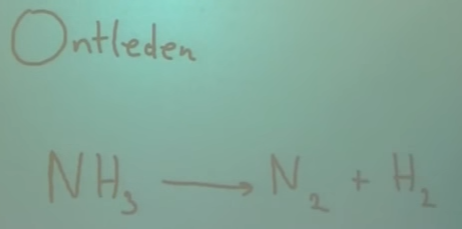 Ontleden
NH₃ → N₂ + H₂